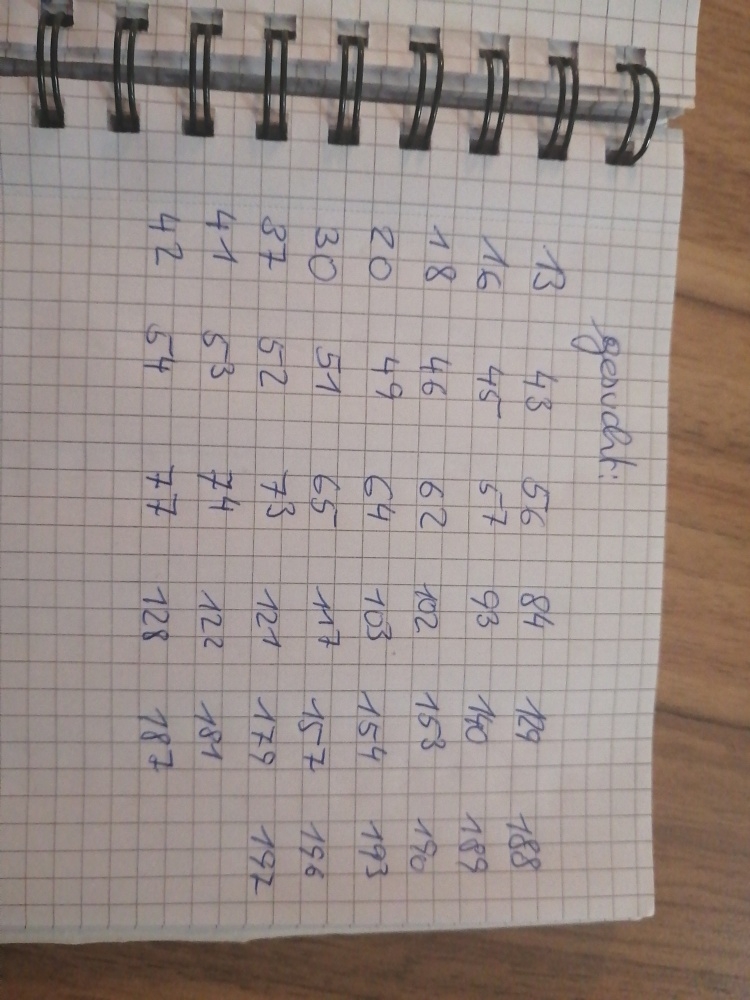 gesucht:
13 43 56 84 129 188
16 45 57 93 140 189
18 46 62 102 153 190
20 49 64 103 154 193
30 51 65 117 157 196
37 52 73 121 179 197
41 53 74 122 181
42 54 77 128 187